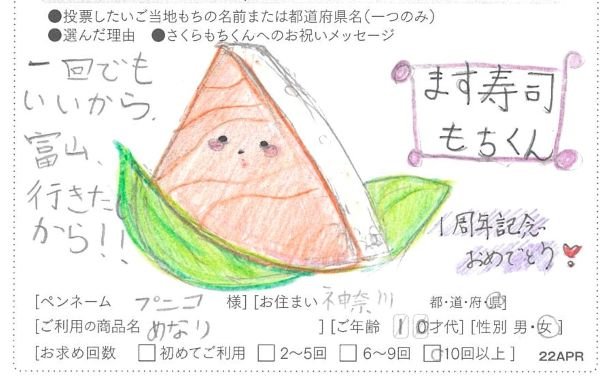 ●投票したいご当地もちの名前または都道府県名(一つのみ)
●選んだ理由 ●さくらもちくんへのお祝いメッセージ
一回でも
いいから、
富山、
行きた
から!!
ます寿司
もちくん
1周年記念
おめでとう
[ペンネーム プニコ 様] [お住まい 神奈川 都・道・府・県]
[ご利用の商品名 めなり ] [ご年齢 10才代] [性別 男・女]
[お求め回数 □初めてご利用 □2〜5回 □6〜9回 □10回以上] 22APR